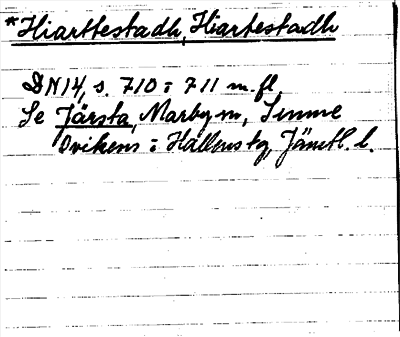 *Hiarttestadh, Hiartestadh
DN 14, s. 710 o 711 m. fl.
Se Järsta, Marby sn, Sunne
Ovikens o Hallens tg, Jämtl. l.